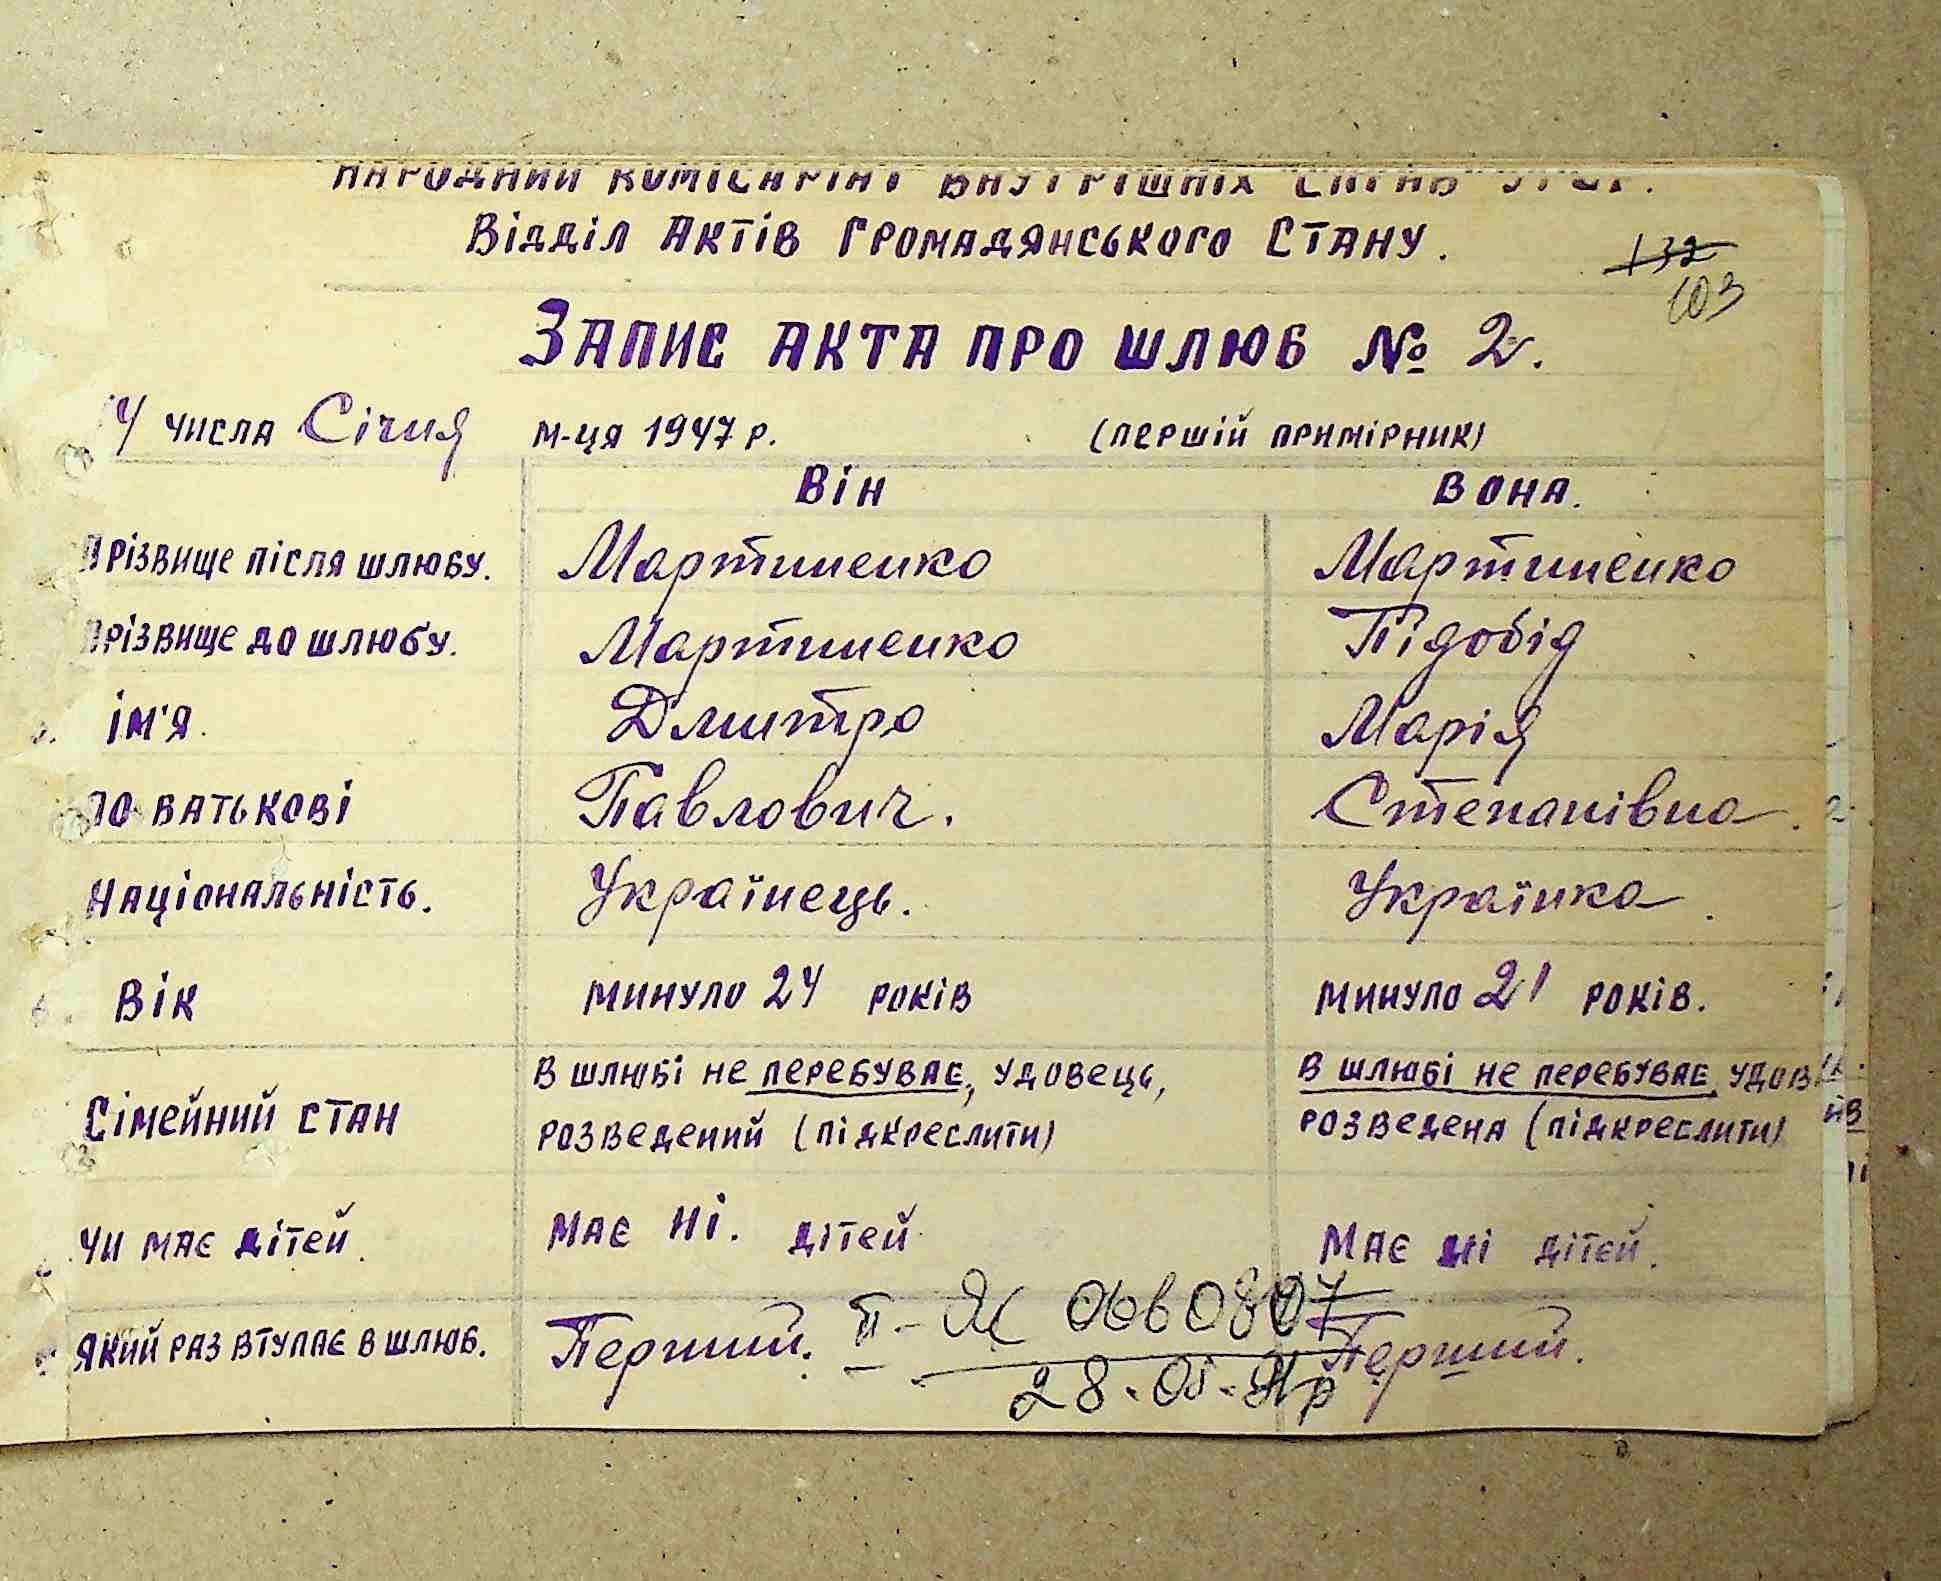 НАРОДНИЙ КОМІСАРІАТ ВНУТРІШНІХ СПРАВ УРСР.
ВІДДІЛ АКТІВ ГРОМАДЯНСЬКОГО СТАНУ.
132
103
ЗАПИС АКТА ПРО ШЛЮБ № 2.
14 ЧИСЛА Січня М-ЦЯ 1947 Р. (ПЕРШІЙ ПРИМІРНИК)
ВІН ВОНА.
ПРІЗВИЩЕ ПІСЛЯ ШЛЮБУ. Мартиненко Мартиненко
ПРІЗВИЩЕ ДО ШЛЮБУ. Мартиненко Підобід
ІМ'Я. Дмитро Марія
ПО БАТЬКОВІ Павлович. Степанівна.
НАЦІОНАЛЬНІСТЬ. Українець. Українка.
ВІК МИНУЛО 24 РОКІВ МИНУЛО 21 РОКІВ.
СІМЕЙНИЙ СТАН В ШЛЮБІ НЕ ПЕРЕБУВАЄ, УДОВЕЦЬ, В ШЛЮБІ НЕ ПЕРЕБУВАЄ, УДОВ
РОЗВЕДЕНИЙ (ПІДКРЕСЛИТИ) РОЗВЕДЕНА (ПІДКРЕСЛИТИ)
ЧИ МАЄ ДІТЕЙ. МАЄ НІ. ДІТЕЙ МАЄ НІ ДІТЕЙ.
ЯКИЙ РАЗ ВТУПАЄ В ШЛЮБ. Перший. Перший.
28.05.91р